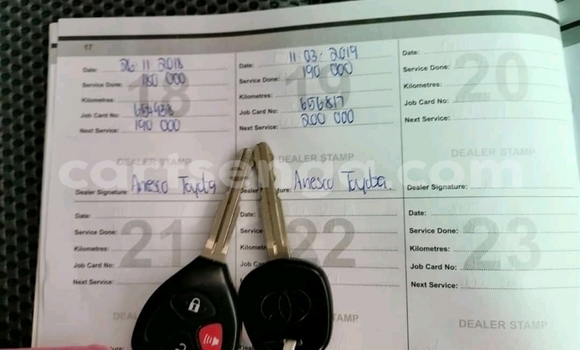 17
Date: 26 11 2018
Service Done: 180 000
Kilometres:
Job Card No:
Next Service: 190 000
18
DEALER STAMP
Dealer Signature: Anesco Toyota
Date: 11-03-2019
Service Done: 190 000
Kilometres:
Job Card No: 656817
Next Service: 200 000
19
DEALER STAMP
Anesco Toyota.
Date:
Service Done:
Kilometres:
Job Card No:
Next Service:
20
DEALER STAMP
Dealer Signature:
Date:
Service Done:
Kilometres:
Job Card No:
Next Service:
21
22
Date:
Service Done:
Kilometres:
Job Card No:
Next Service:
23
STAMP
DEALER STAMP